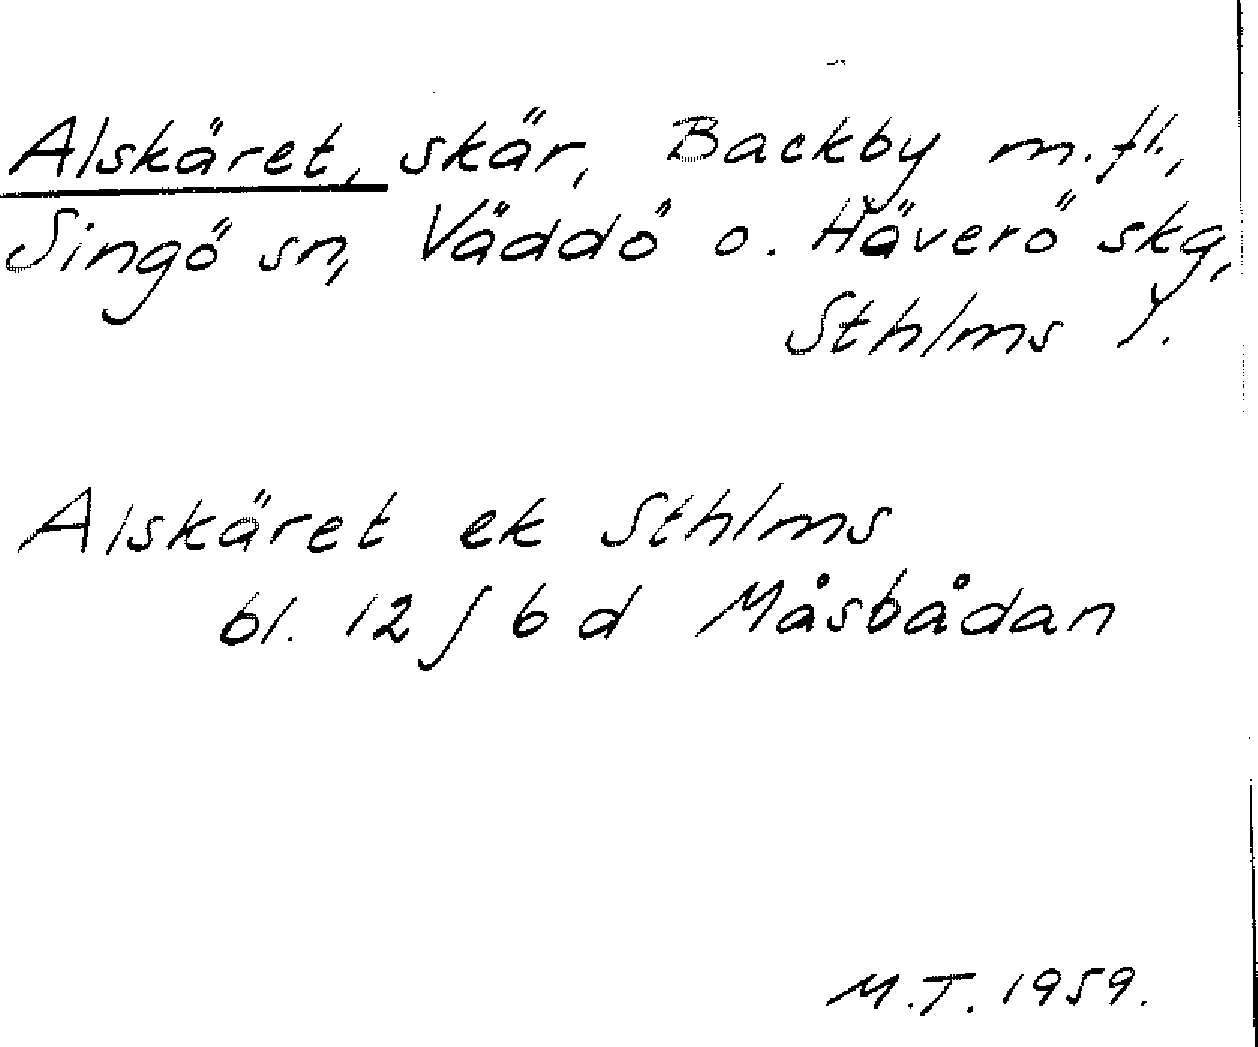 Alskäret, skär, Backby m.fl.,
Singö sn, Väddö o. Häverö skg,
Sthlms l.
Alskäret ek Sthlms
bl. 12 J 6 d Måsbådan
M.T. 1959.